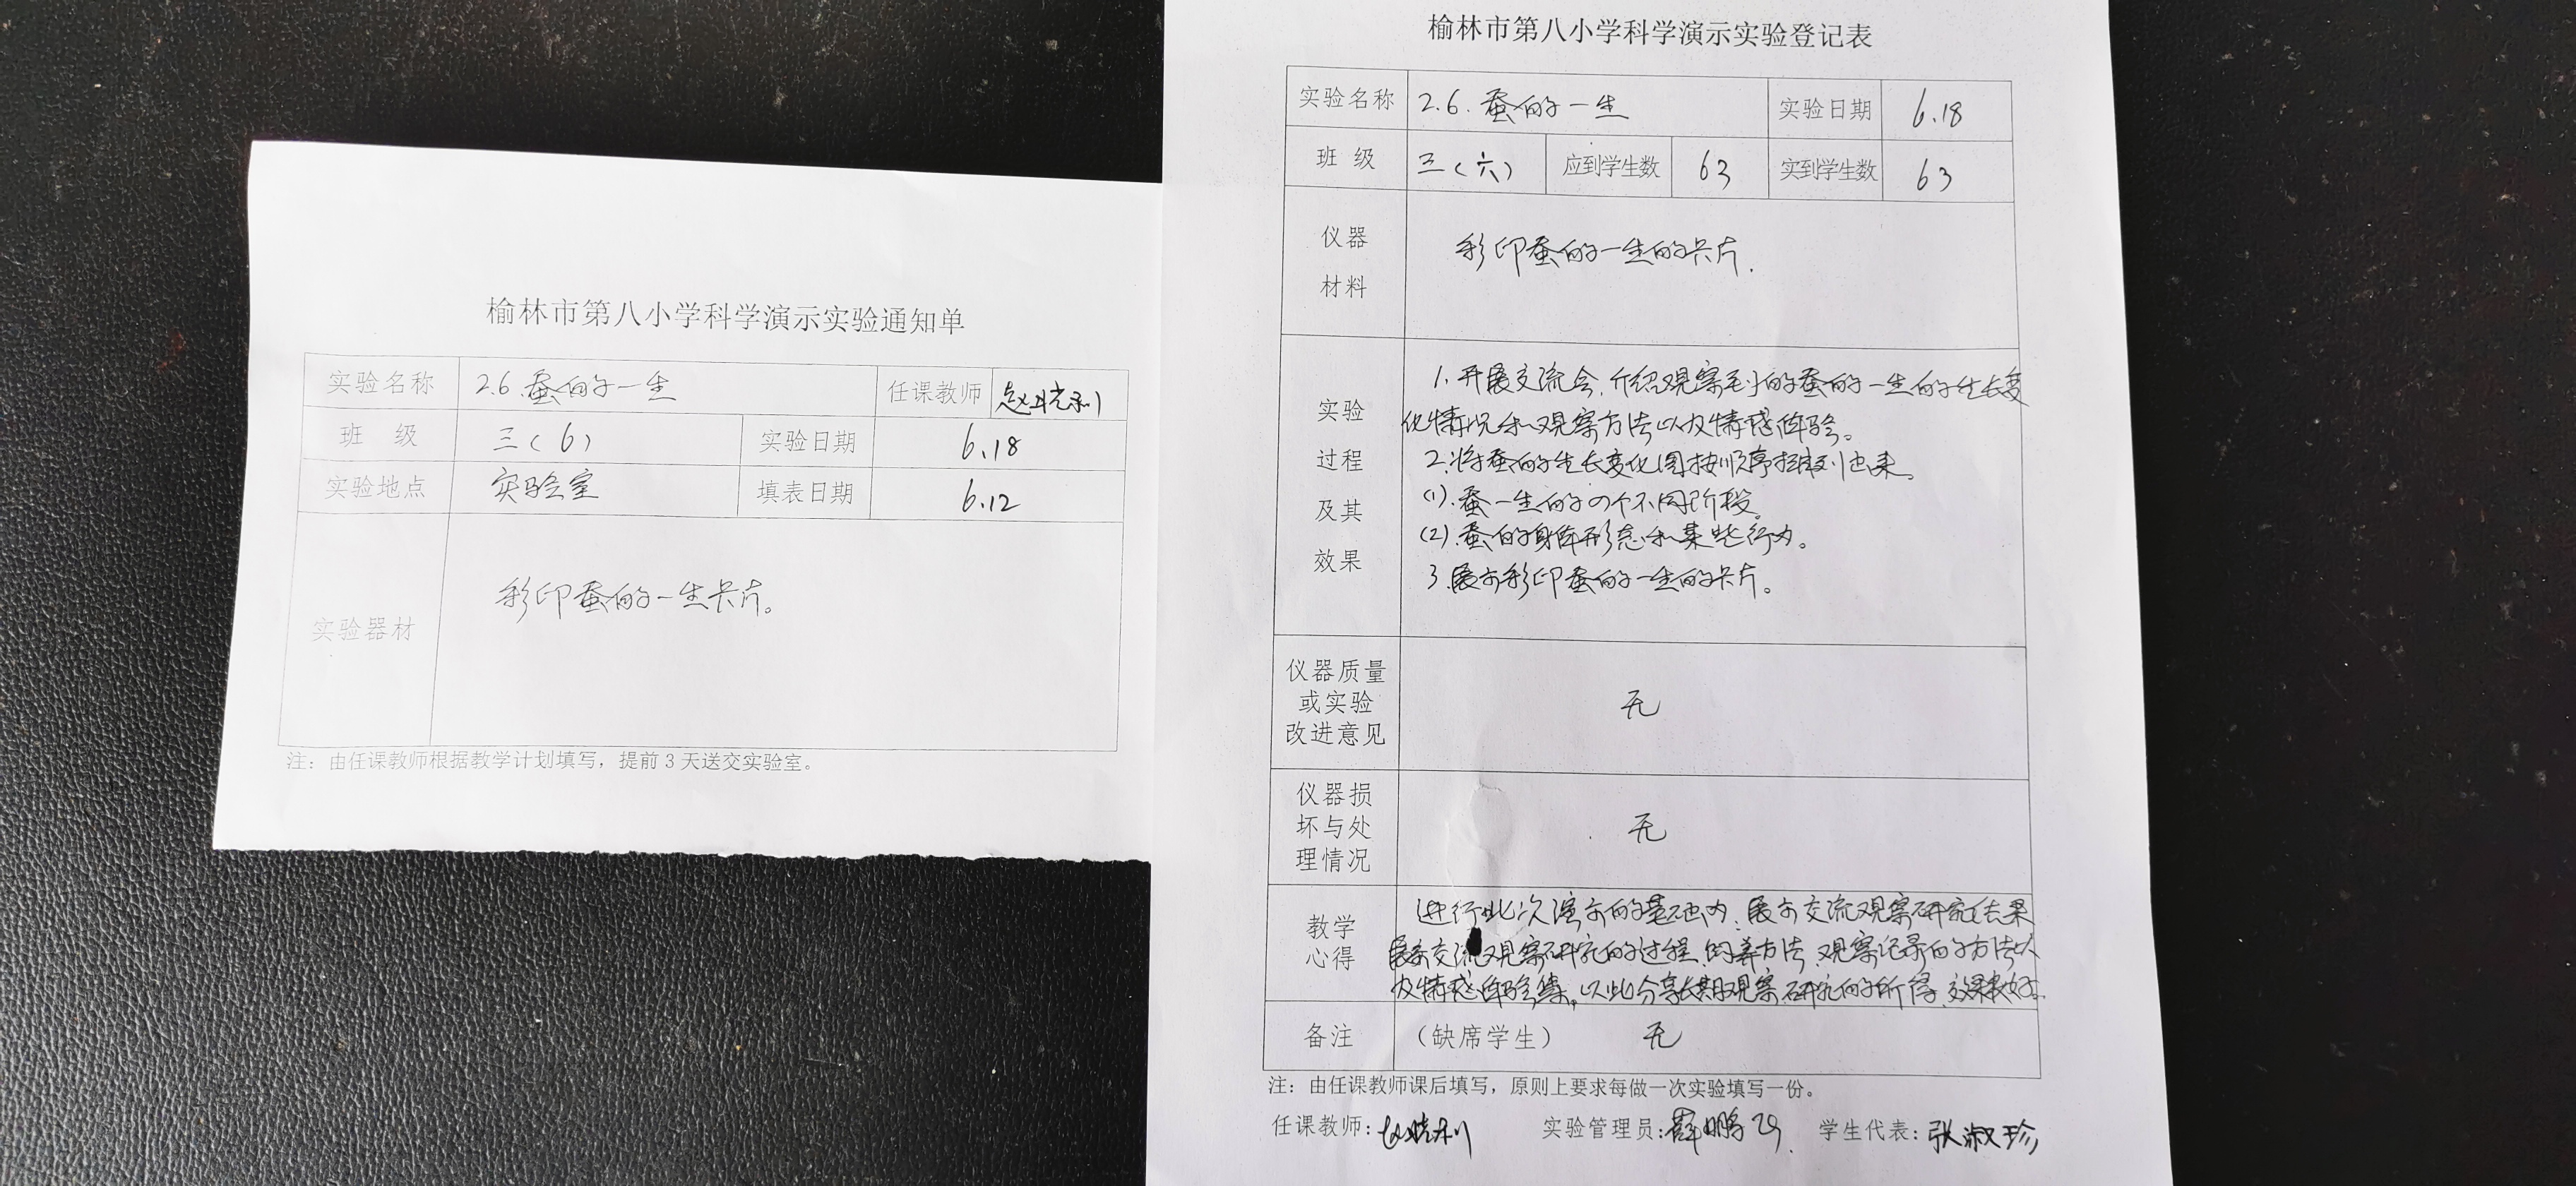 榆林市第八小学科学演示实验通知单
实验名称 2.6.蚕的一生 任课教师 赵晓利
班 级 三(6) 实验日期 6.18
实验地点 实验室 填表日期 6.12
实验器材 彩印蚕的一生卡片。
注：由任课教师根据教学计划填写，提前3天送交实验室。
榆林市第八小学科学演示实验登记表
实验名称 2.6.蚕的一生 实验日期 6.18
班 级 三(六) 应到学生数 63 实到学生数 63
仪器
材料
彩印蚕的一生的卡片.
实验
过程
及其
效果
1.开展交流会.介绍观察到的蚕的一生的生长变
化情况和观察方法以及情感体验。
2.将蚕的生长变化图按顺序排列出来。
(1).蚕一生的四个不同阶段。
(2).蚕的身体形态和某些行为。
3.展示彩印蚕的一生的卡片。
仪器质量
或实验
改进意见
无
仪器损
坏与处
理情况
无
教学
心得
进行此次演示的基础为.展示交流观察研究结果
展示交流观察研究的过程.饲养方法.观察记录的方法以
及情感体验等。以此分享长期观察.研究的所得.效果较好。
备注 （缺席学生） 无
注：由任课教师课后填写，原则上要求每做一次实验填写一份。
任课教师：赵晓利 实验管理员：薛鹏 学生代表：张淑珍